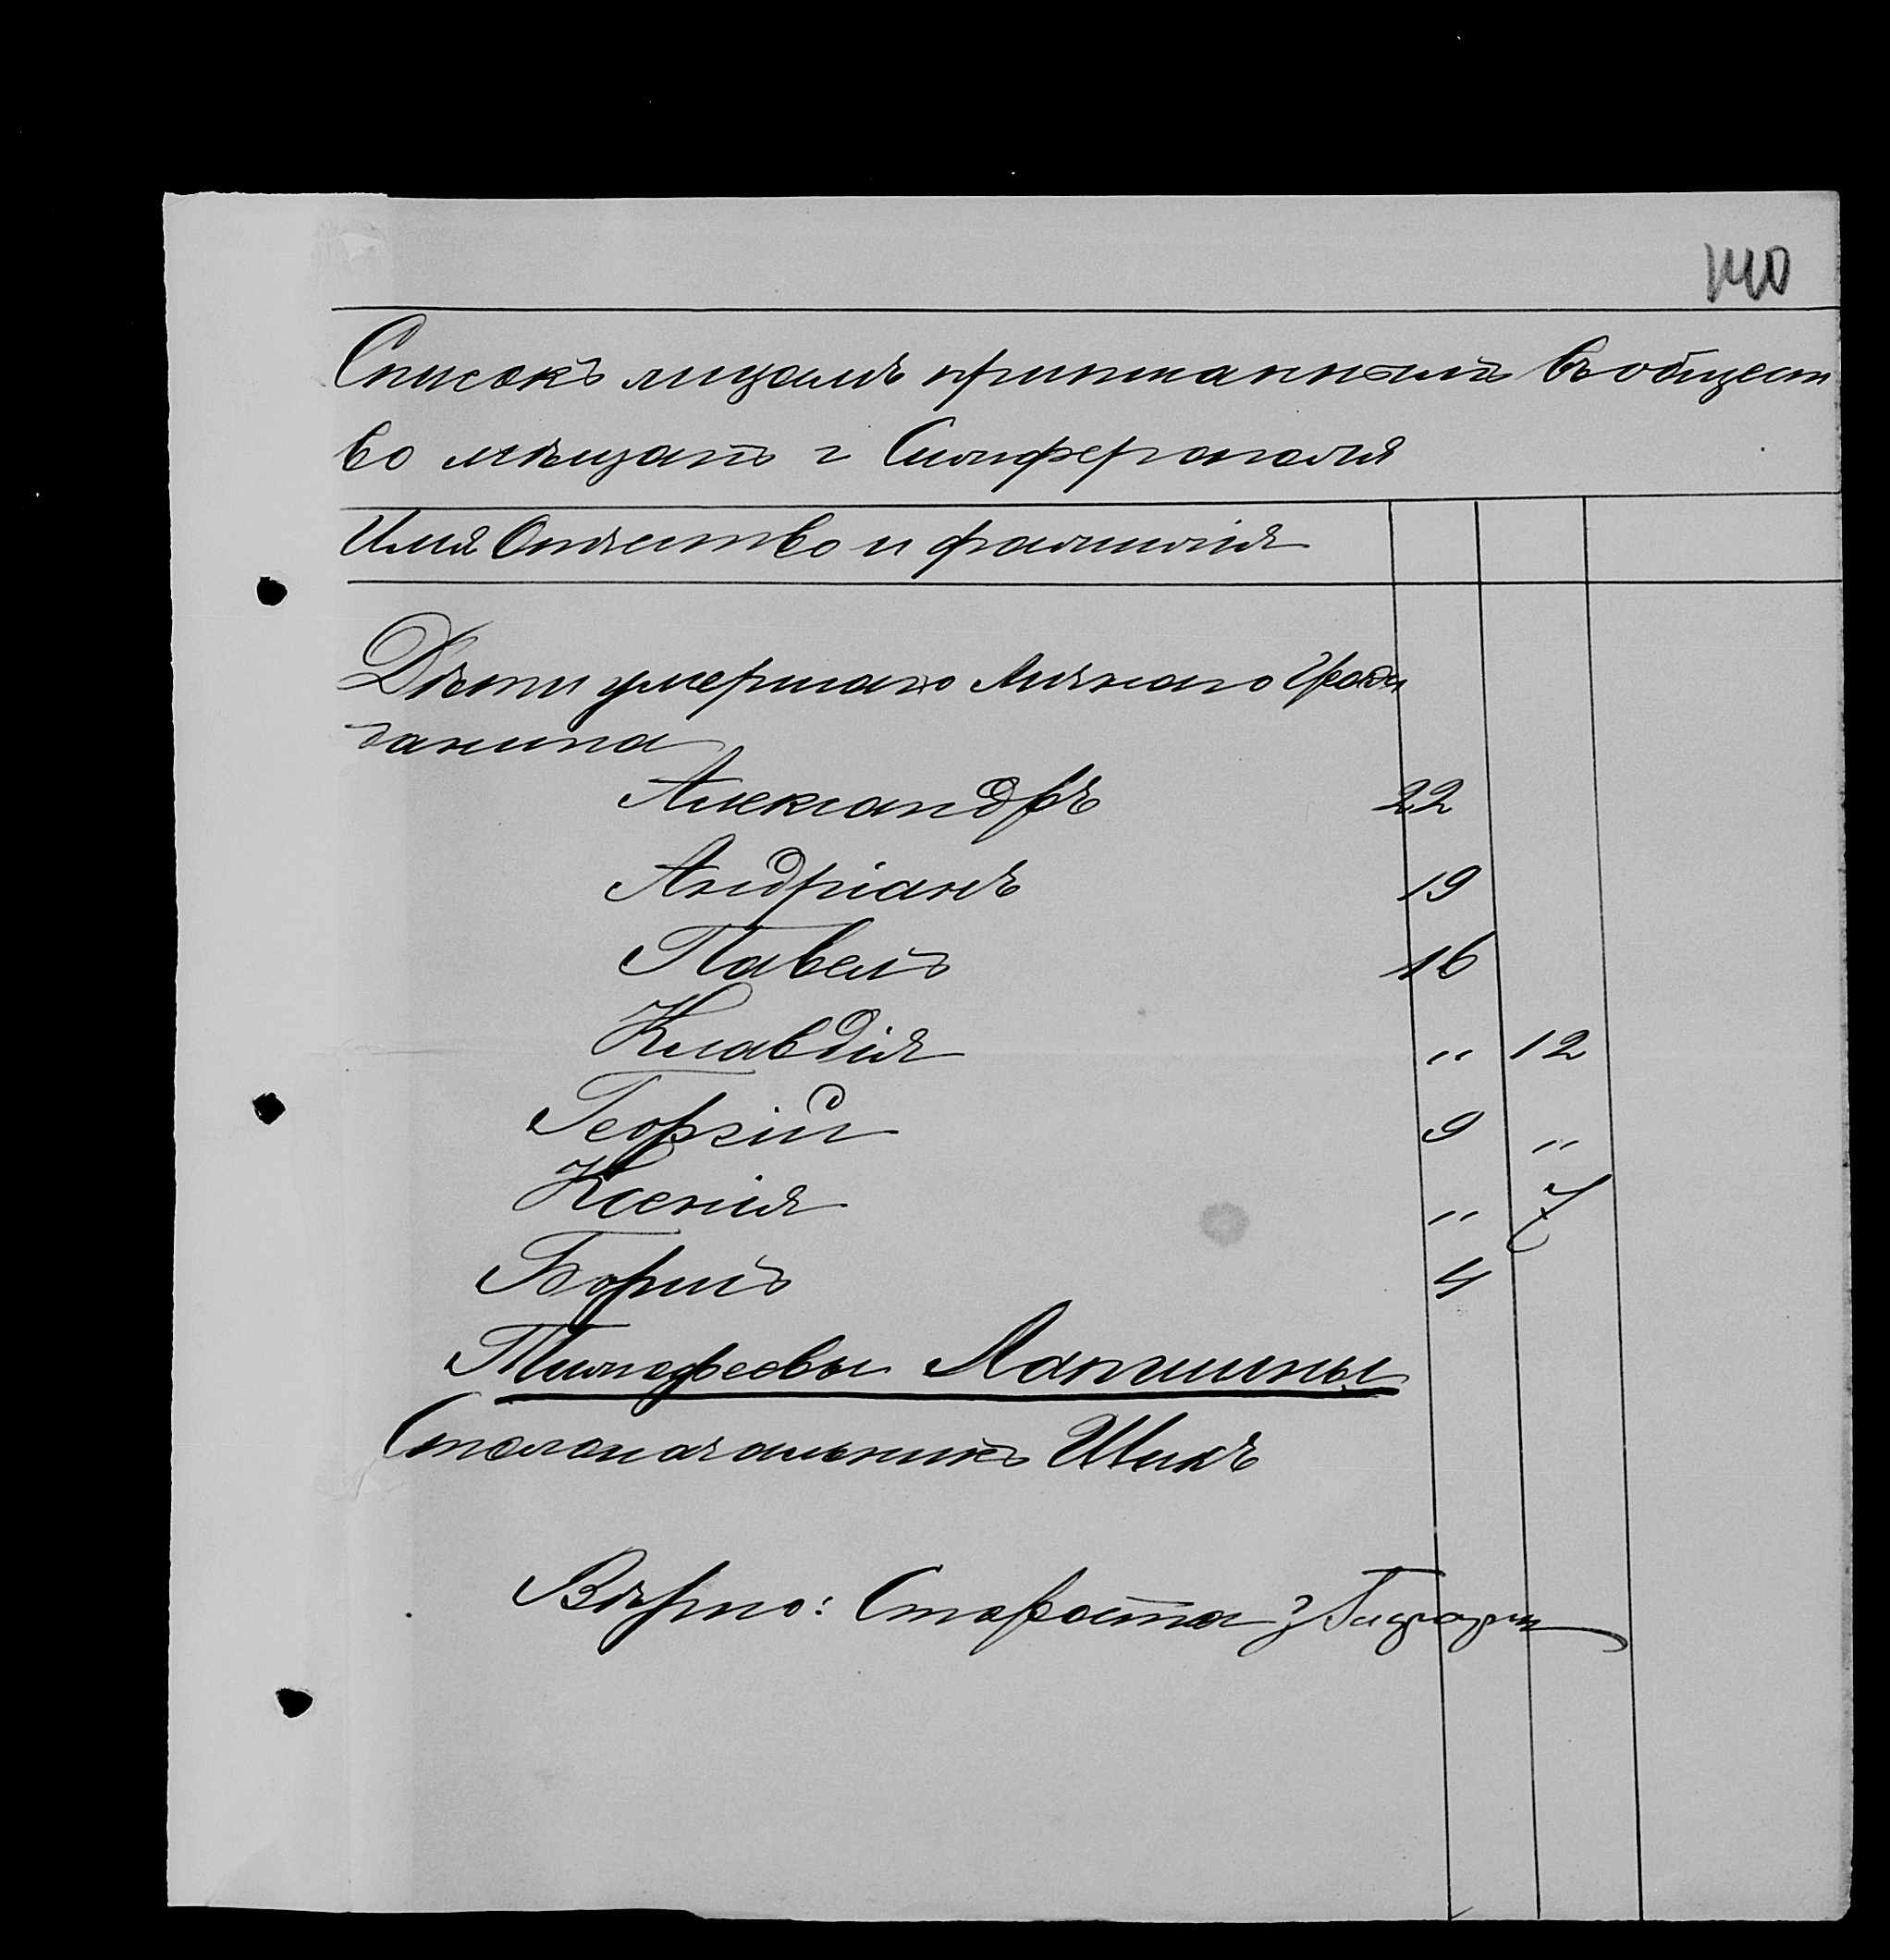 140
Списокъ лицамъ приписаннымъ въ общест
во мѣщанъ г Симферополя
Имя Отчество и фамилія
Дѣти умершаго Личнаго Граж
данина
Александръ 22
Андріанъ 19
Павелъ 16
Клавдія " 12
Георгій 9 "
Ксенія " 7
Борисъ 4
Тимофеевы Лапшины
Столоначальникъ Шикъ
Вѣрно: Староста